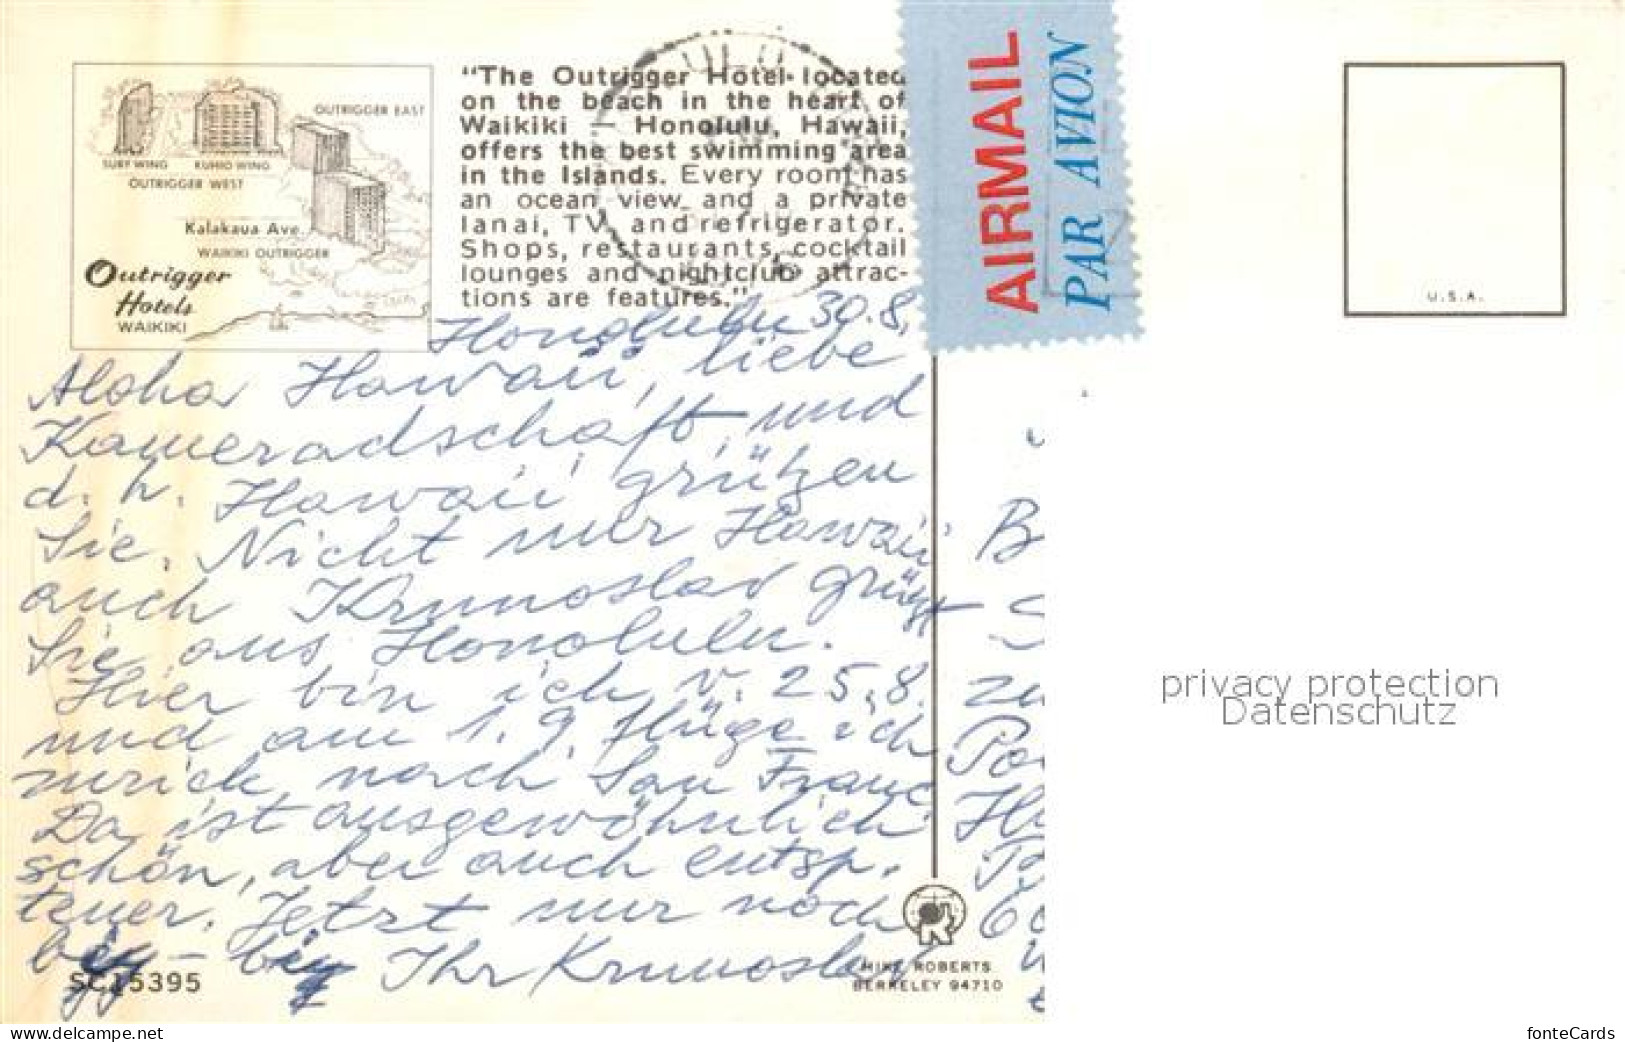 OUTRIGGER EAST
SURF WING KUHIO WING
OUTRIGGER WEST
Kalakaua Ave.
WAIKIKI OUTRIGGER
Outrigger
Hotels
WAIKIKI
"The Outrigger Hotel located
on the beach in the heart of
Waikiki — Honolulu, Hawaii,
offers the best swimming area
in the Islands. Every room has
an ocean view and a private
lanai, TV and refrigerator.
Shops, restaurants, cocktail
lounges and nightclub attrac-
tions are features."
AIRMAIL
PAR AVION
U.S.A.
Honolulu 30.8.
Aloha Hawaii, liebe
Kameradschaft und
d. h. Hawaii grüßen
Sie. Nicht nur Hawaii
auch Krunoslav grüßt
Sie aus Honolulu.
Hier bin ich v. 25.8.
und am 1.9. flüge ich
zurück nach San Franc
Da ist ausgewöhnlich
schön, aber auch entsp.
teuer. Jetzt nur noch
Ihr Krunoslav
B
S
zu
Po
SC15395
MIKE ROBERTS
BERKELEY 94710
privacy protection
Datenschutz
www.delcampe.net
fonteCards